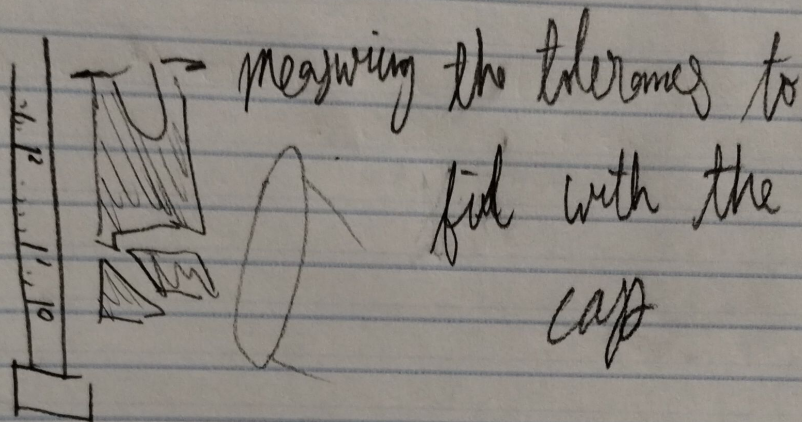 measuring the tolerances to
fid with the
cap